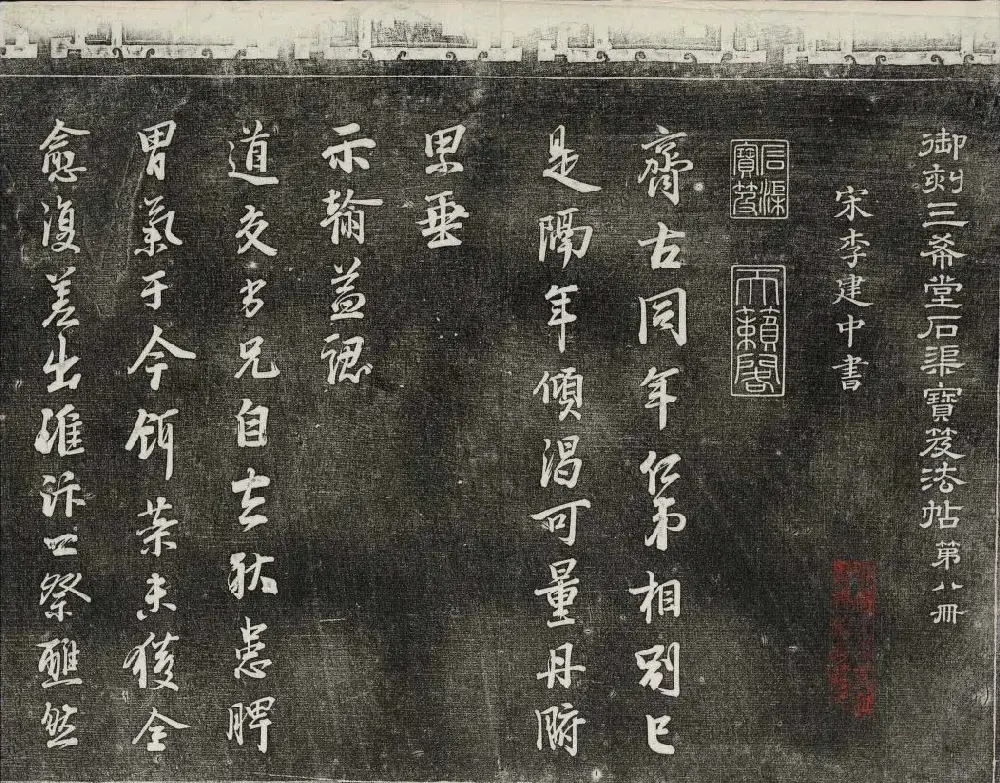 御刻三希堂石渠寶笈法帖 第八冊
宋李建中書
石渠寶笈
天籟閣
齊古同年仁弟相別已
是隔年傾渴可量丹腑
思垂
示翰益認
道交劣兄自去秋患脾
胃氣于今餌藥未獲全
愈復差出淮汴口祭醮然